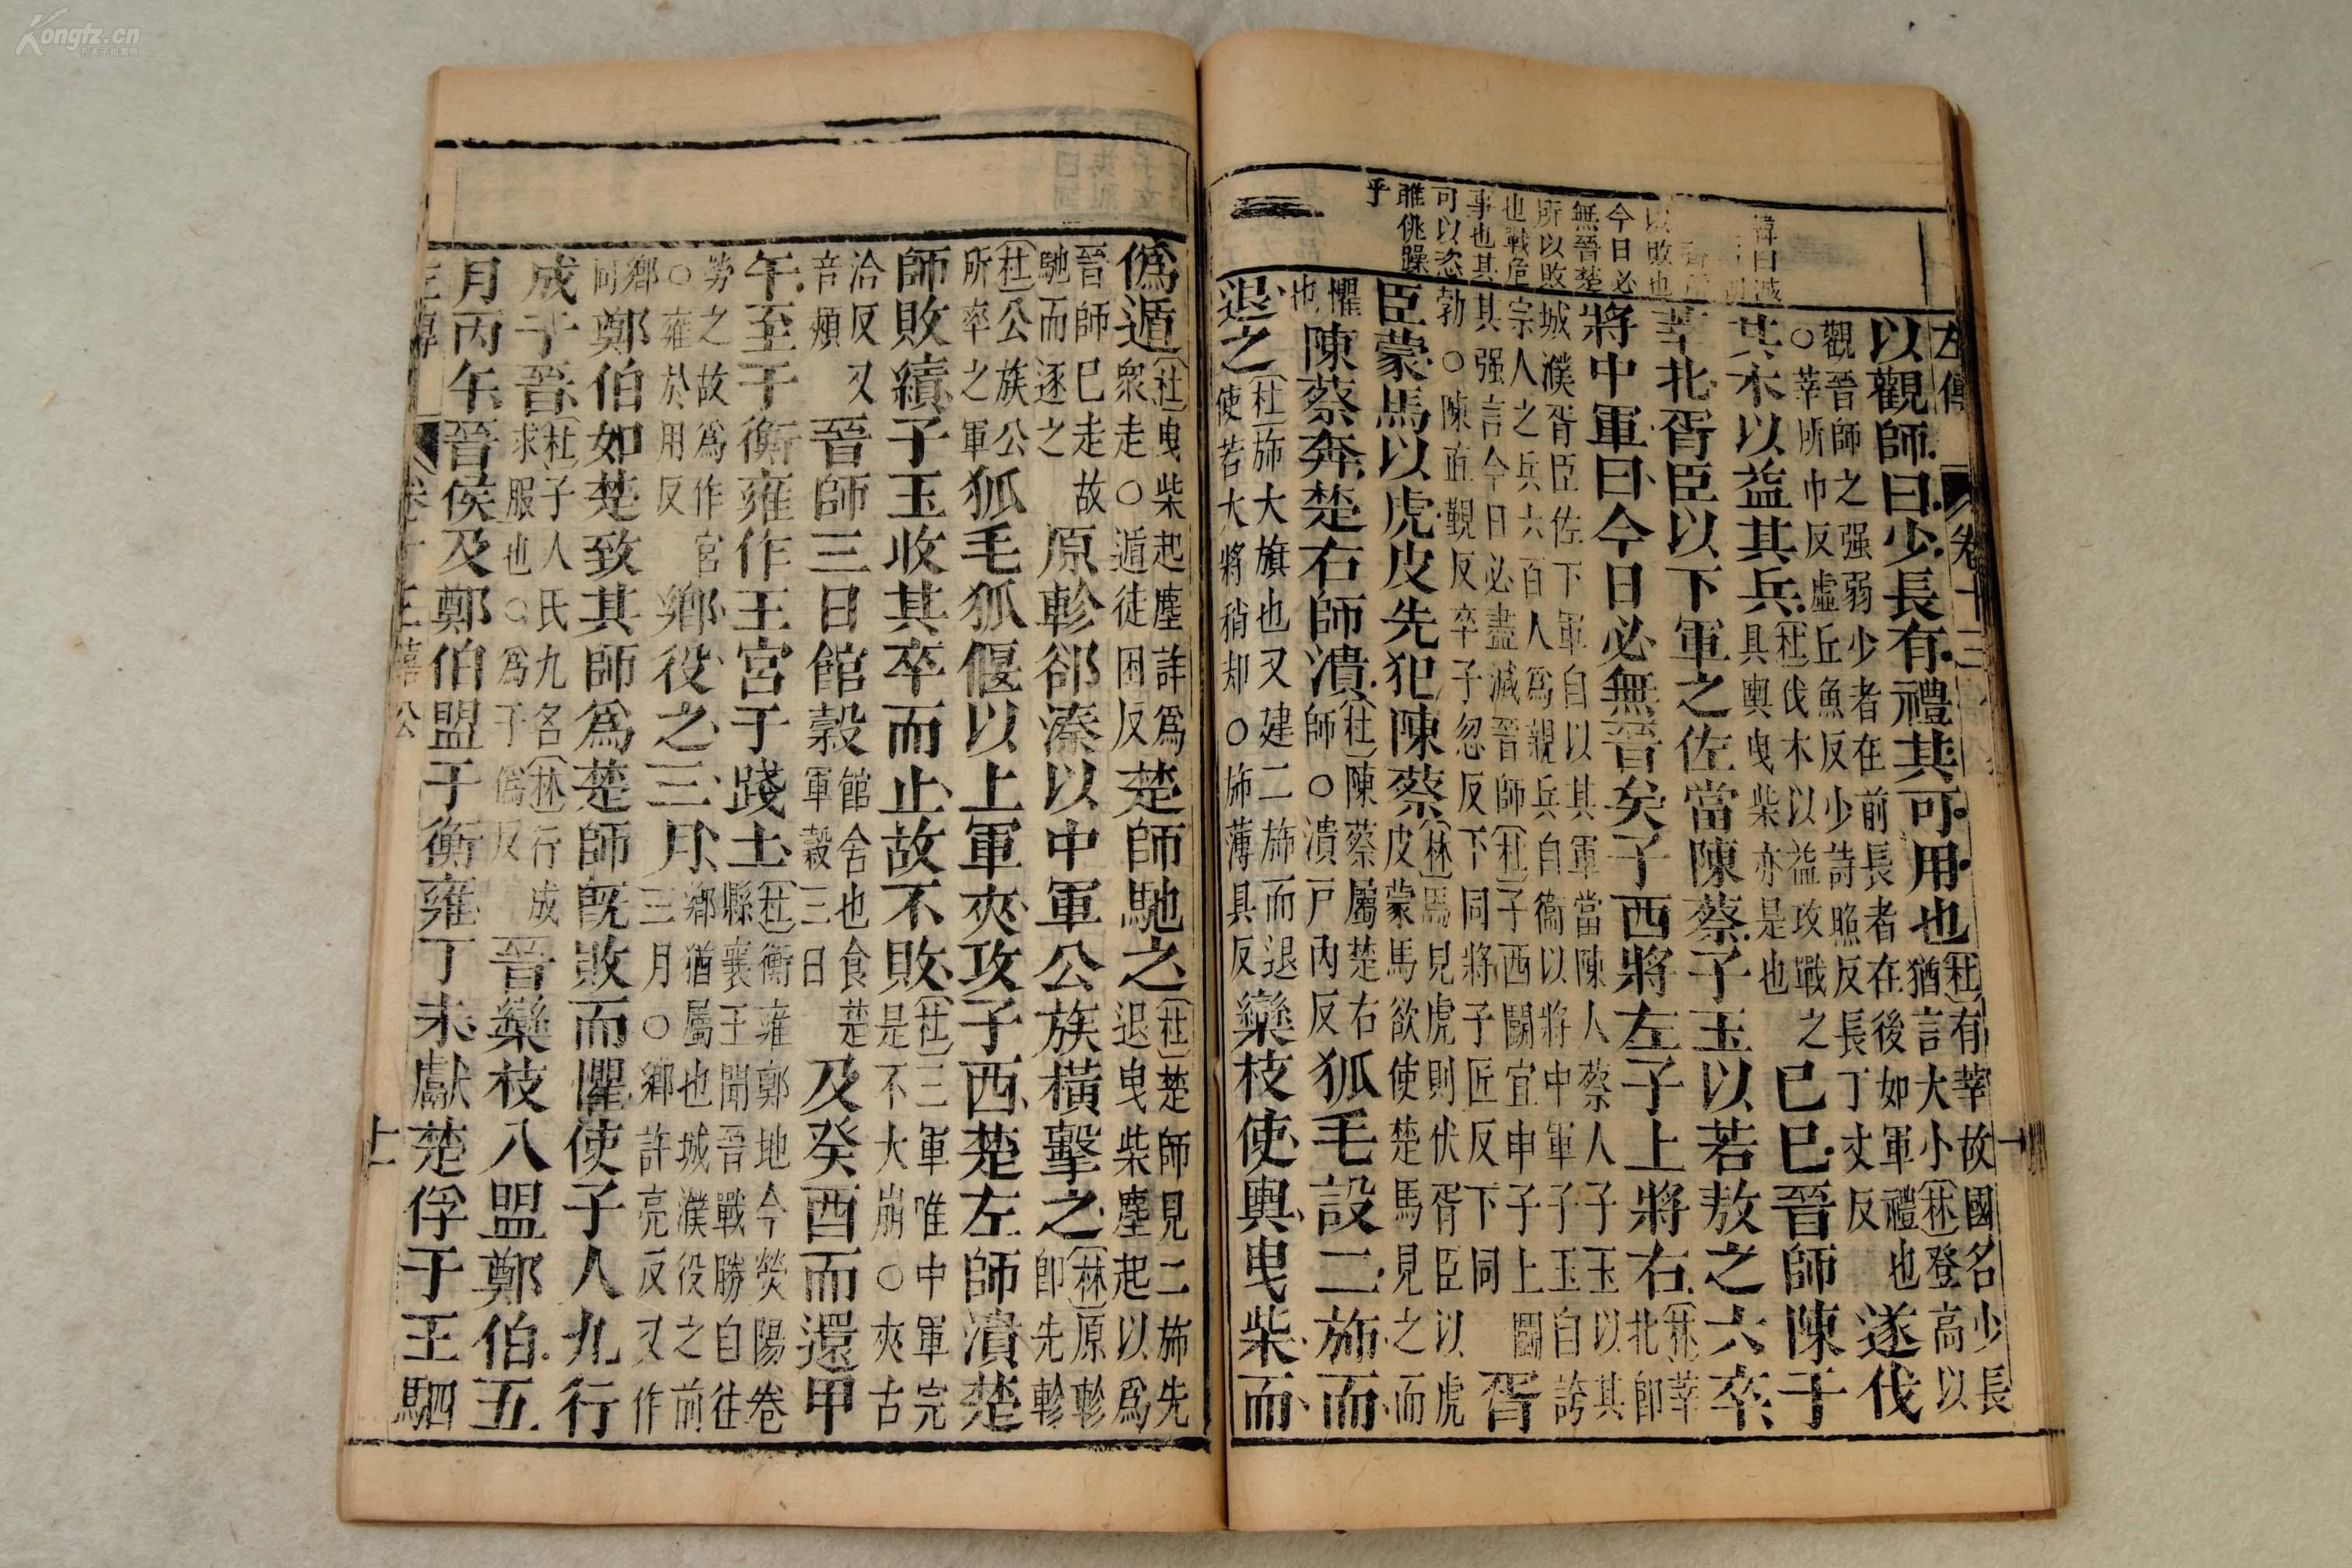 Kongfz.cn
左傳 卷十三
曰滅
以敗也
今日必
無晉楚
所以敗
也戰危
事也其
可以恣
睢佻躁
乎
以觀師曰少長有禮其可用也杜有莘故國名少長猶言大小林登高以
觀晉師之强弱少者在前長者在後如軍禮也○莘所巾反虛丘魚反少詩照反長丁丈反遂伐
其木以益其兵杜伐木以益攻戰之具輿曳柴亦是也已巳晉師陳于
莘北胥臣以下軍之佐當陳蔡子玉以若敖之六卒
將中軍曰今日必無晉矣子西將左子上將右林莘北即
城濮胥臣佐下軍自以其軍當陳人蔡人子玉以其宗人之兵六百人爲親兵自衞以將中軍子玉自誇
其强言今日必盡滅晉師杜子西鬭宜申子上鬭勃○陳直覲反卒子忽反下同將子匠反下同胥
臣蒙馬以虎皮先犯陳蔡林馬見虎則伏胥臣以虎皮蒙馬欲使楚馬見之而
懼也陳蔡奔楚右師潰杜陳蔡屬楚右師○潰戶內反狐毛設二旆而
退之杜旆大旗也又建二旆而退使若大將稍却○旆薄具反欒枝使輿曳柴而
僞遁杜曳柴起塵詐爲衆走○遁徒困反楚師馳之杜楚師見二旆先退曳柴塵起以爲
晉師已走故馳而逐之原軫郤溱以中軍公族橫擊之林原軫即先軫
杜公族公所率之軍狐毛狐偃以上軍夾攻子西楚左師潰楚
師敗績子玉收其卒而止故不敗杜三軍唯中軍完是不大崩○夾古
洽反又音頰晉師三日館穀館舍也食楚軍穀三日及癸酉而還甲
午至于衡雍作王宮于踐土杜衡雍鄭地今熒陽卷縣襄王聞晉戰勝自往
勞之故爲作官○雍於用反鄉役之三月鄉猶屬也城濮役之前三月○鄉許亮反又作
鄉同鄭伯如楚致其師爲楚師既敗而懼使子人九行
成于晉杜子人氏九名林行成求服也○爲于僞反晉欒枝入盟鄭伯五
月丙午晉侯及鄭伯盟于衡雍丁未獻楚俘于王駟
左傳 卷十三僖公 十一